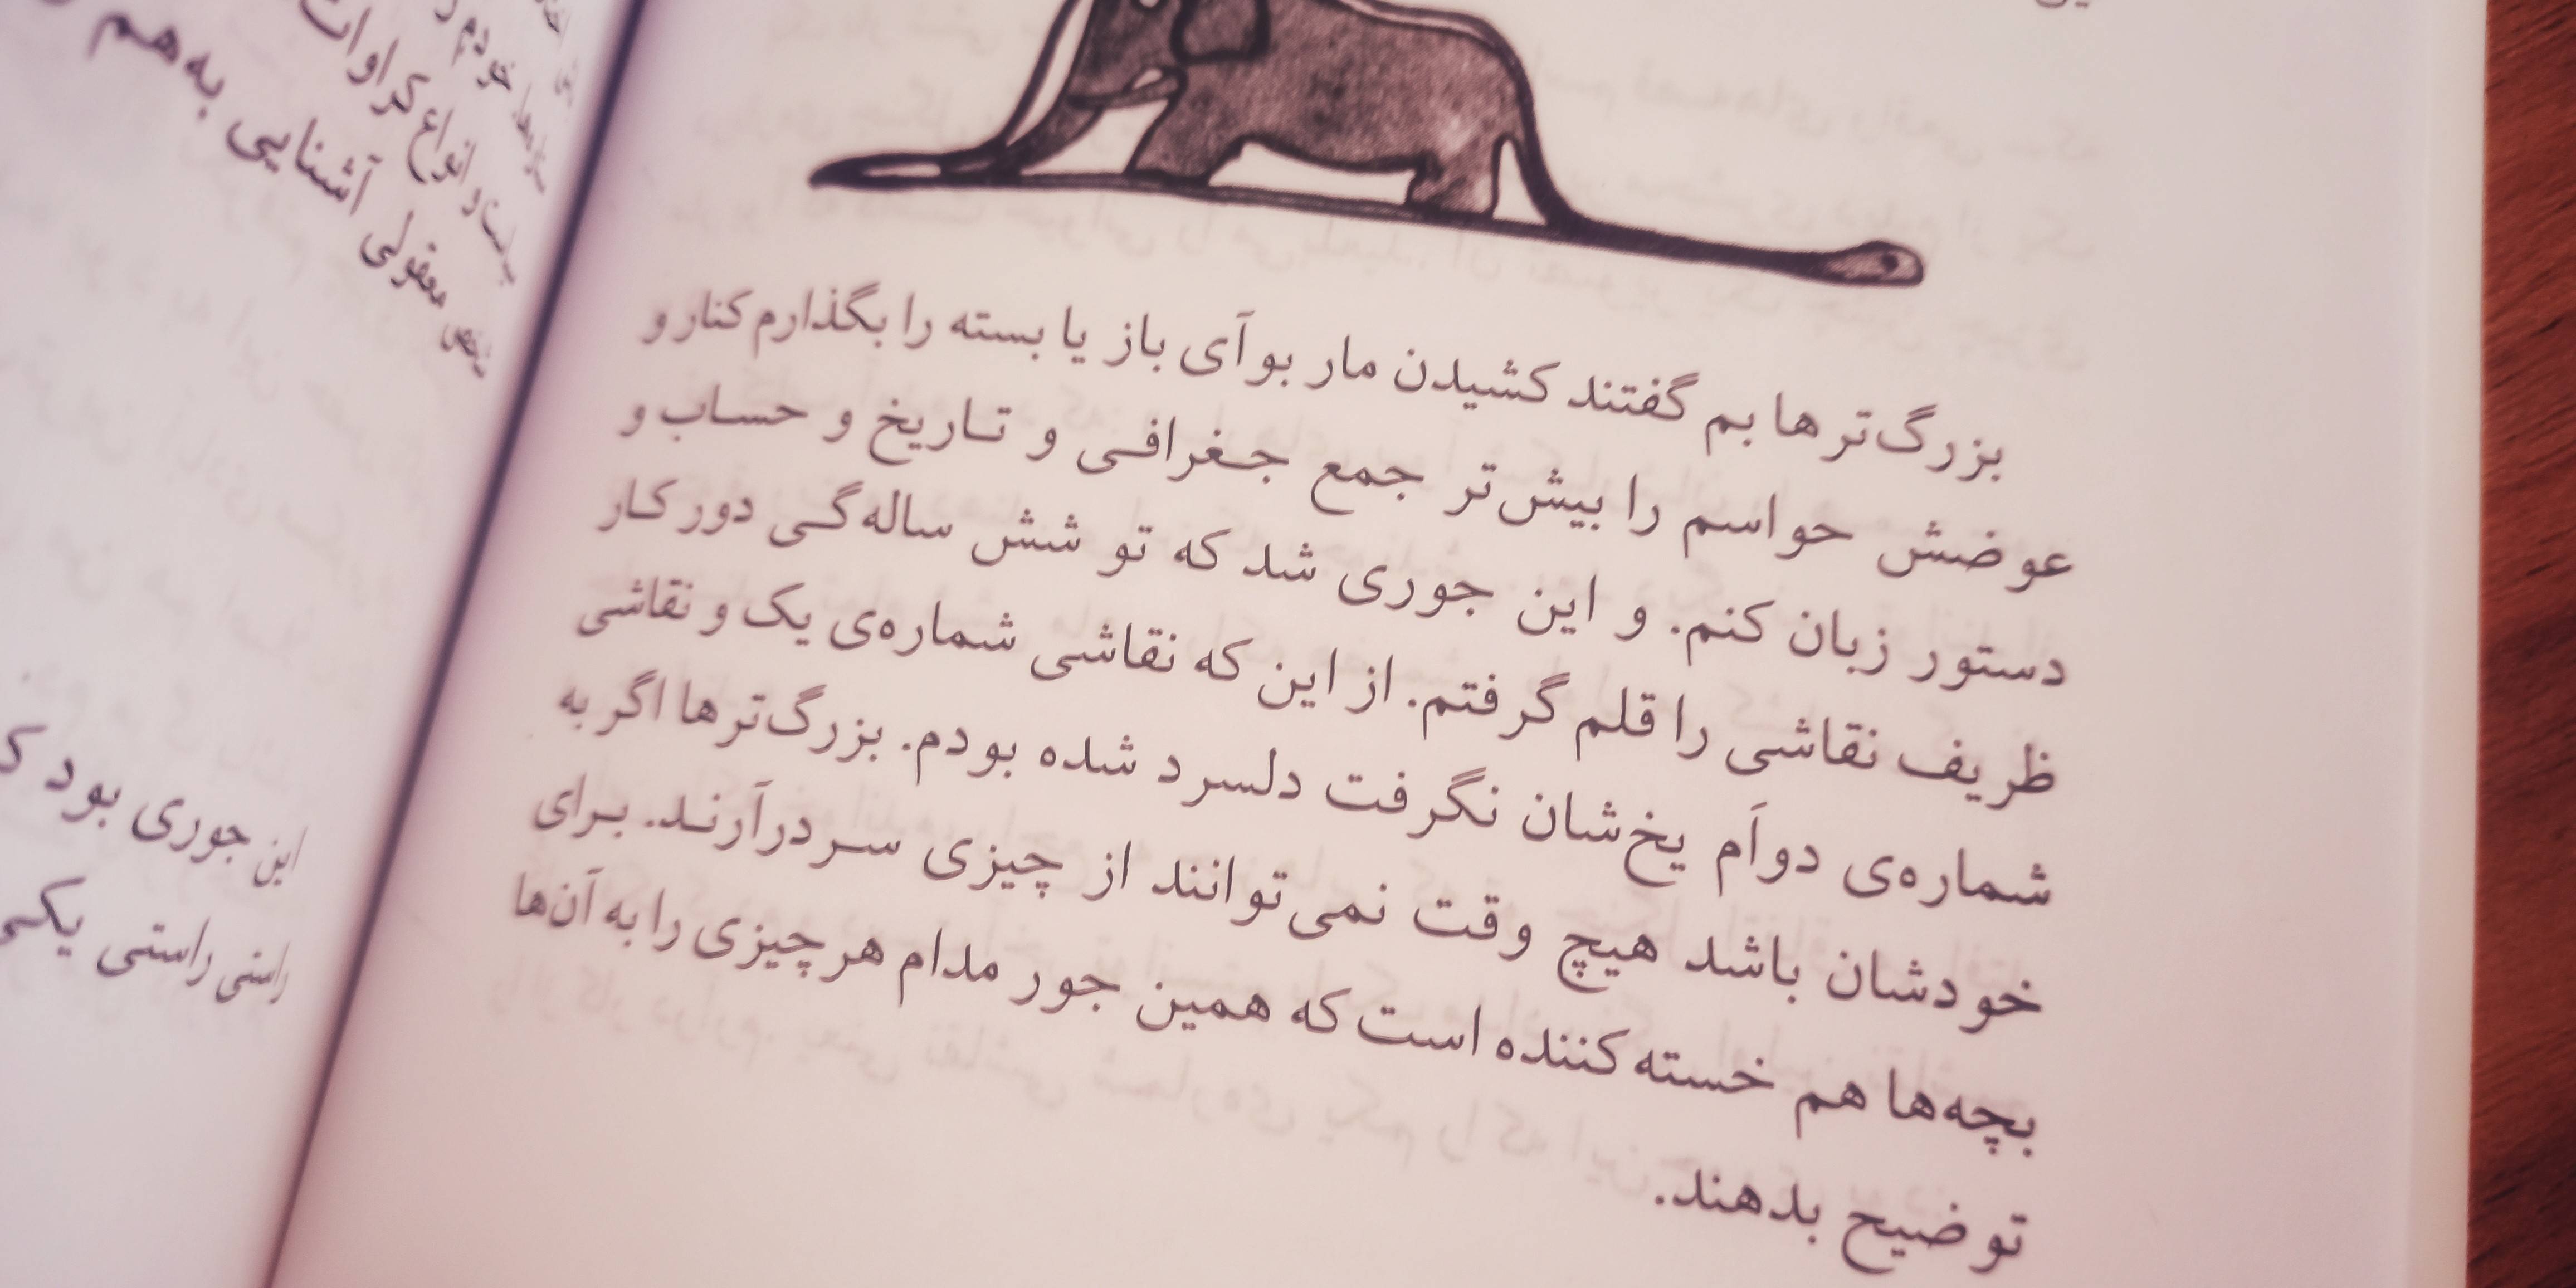 بزرگ‌ترها بم گفتند کشیدن مار بوآی باز یا بسته را بگذارم کنار و
عوضش حواسم را بیش‌تر جمع جغرافی و تاریخ و حساب و
دستور زبان کنم. و این جوری شد که تو شش ساله‌گی دور کار
ظریف نقاشی را قلم گرفتم. از این که نقاشی شماره‌ی یک و نقاشی
شماره‌ی دوآم یخ‌شان نگرفت دلسرد شده بودم. بزرگ‌ترها اگر به
خودشان باشد هیچ وقت نمی‌توانند از چیزی سردرآرند. برای
بچه‌ها هم خسته کننده است که همین جور مدام هر چیزی را به آن‌ها
توضیح بدهند.
خودم
و انواع کراوات
معقولی آشنایی به‌هم
این جوری بود
راستی راستی